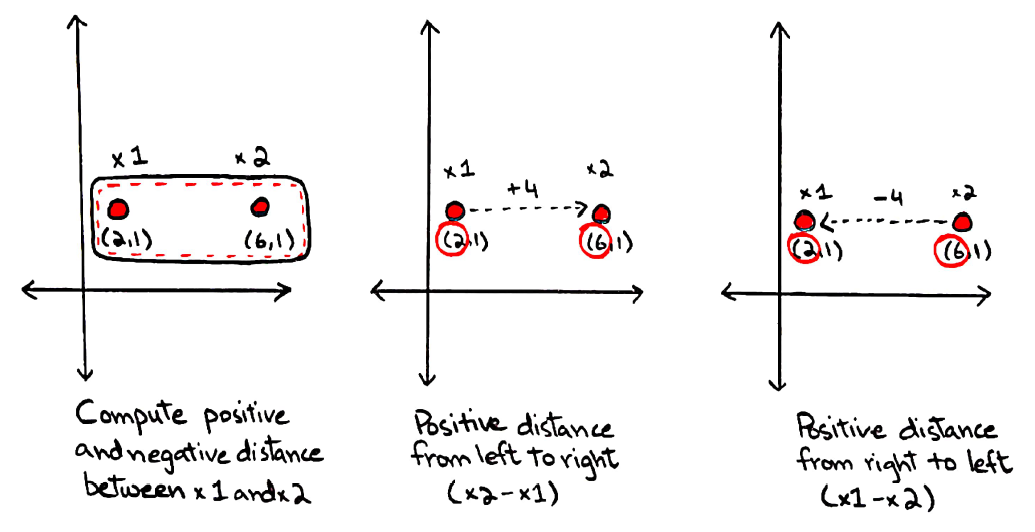 x1 x2
(2,1) (6,1)
Compute positive
and negative distance
between x1 and x2
x1 +4 x2
(2,1) (6,1)
Positive distance
from left to right
(x2-x1)
x1 -4 x2
(2,1) (6,1)
Positive distance
from right to left
(x1-x2)